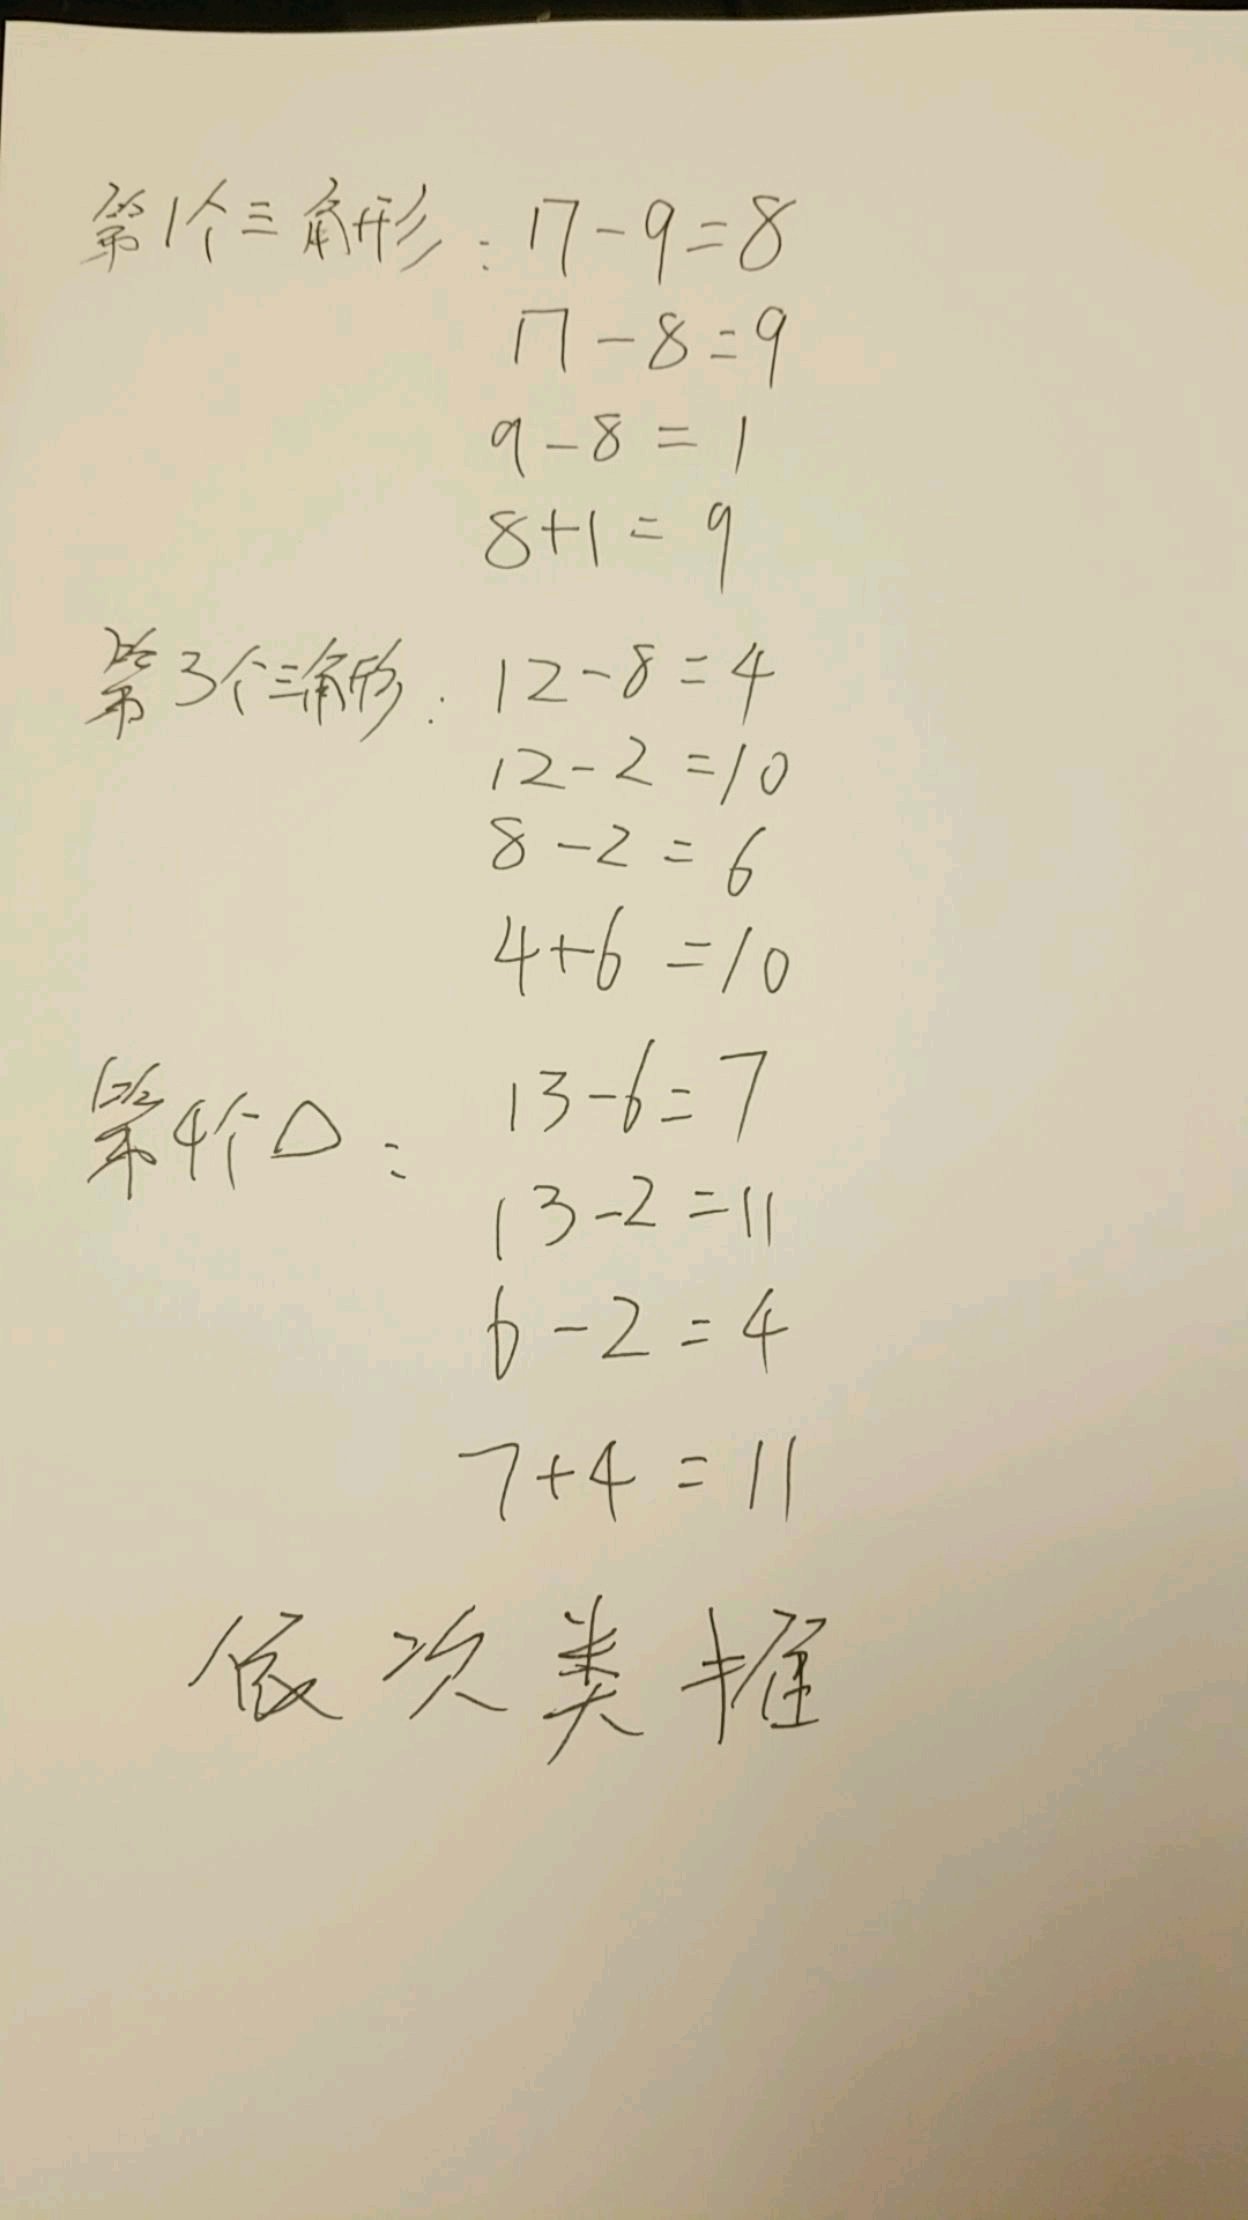 第1个三角形：17-9=8
17-8=9
9-8=1
8+1=9
第3个三角形：12-8=4
12-2=10
8-2=6
4+6=10
第4个△：13-6=7
13-2=11
6-2=4
7+4=11
依次类推